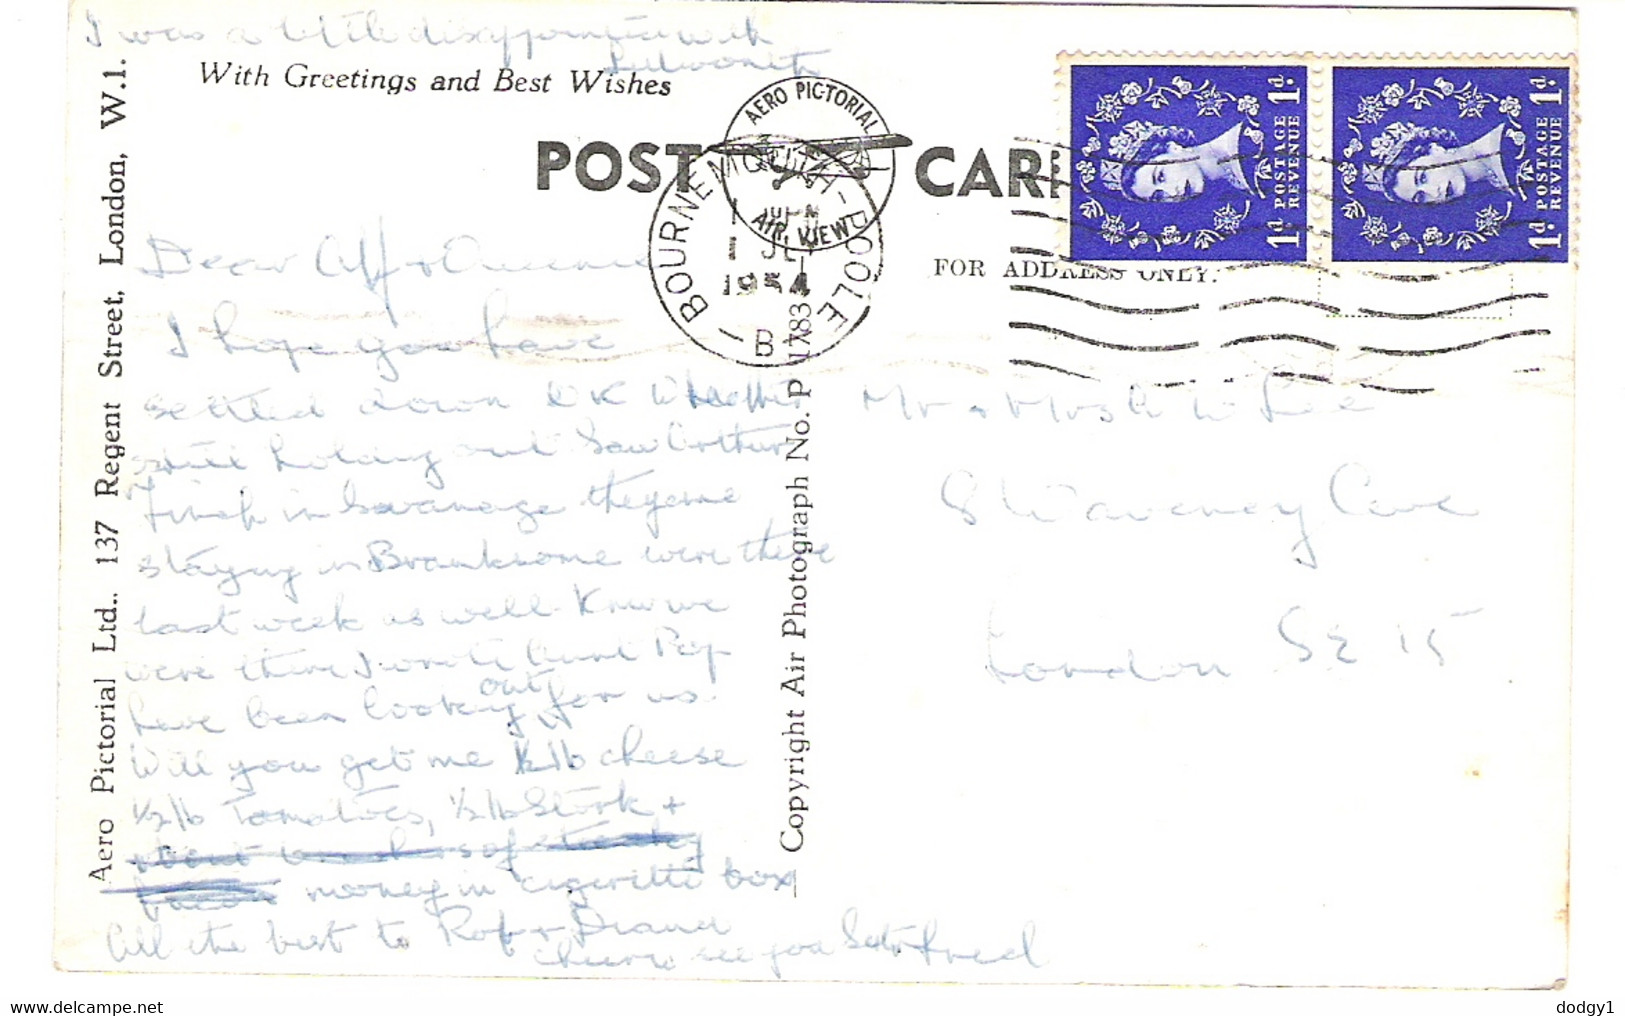 I was a little disappointed with
Lulworth
With Greetings and Best Wishes
POST CARD
AERO PICTORIAL
AIR VIEW
BOURNEMOUTH-POOLE
1 JLY
1954
B
1d. POSTAGE REVENUE 1d.
1d. POSTAGE REVENUE 1d.
FOR ADDRESS ONLY.
Aero Pictorial Ltd., 137 Regent Street, London, W.1.
Copyright Air Photograph No. P 1783
Dear Alf &
I hope you have
settled down OK Weather
still holding out Saw Arthur
Finch in Swanage they are
staying in Branksome were there
last week as well. Knew we
were there I wrote Aunt Pop
have been looking out for us.
Will you get me ½ lb cheese
½ lb Tomatoes, ½ lb Stork +
money in cigarette box
All the best to +
cheerio see you Sat Fred
Mr & Mrs A W Lee
8 Waveney Ave
London SE 15
dodgy1